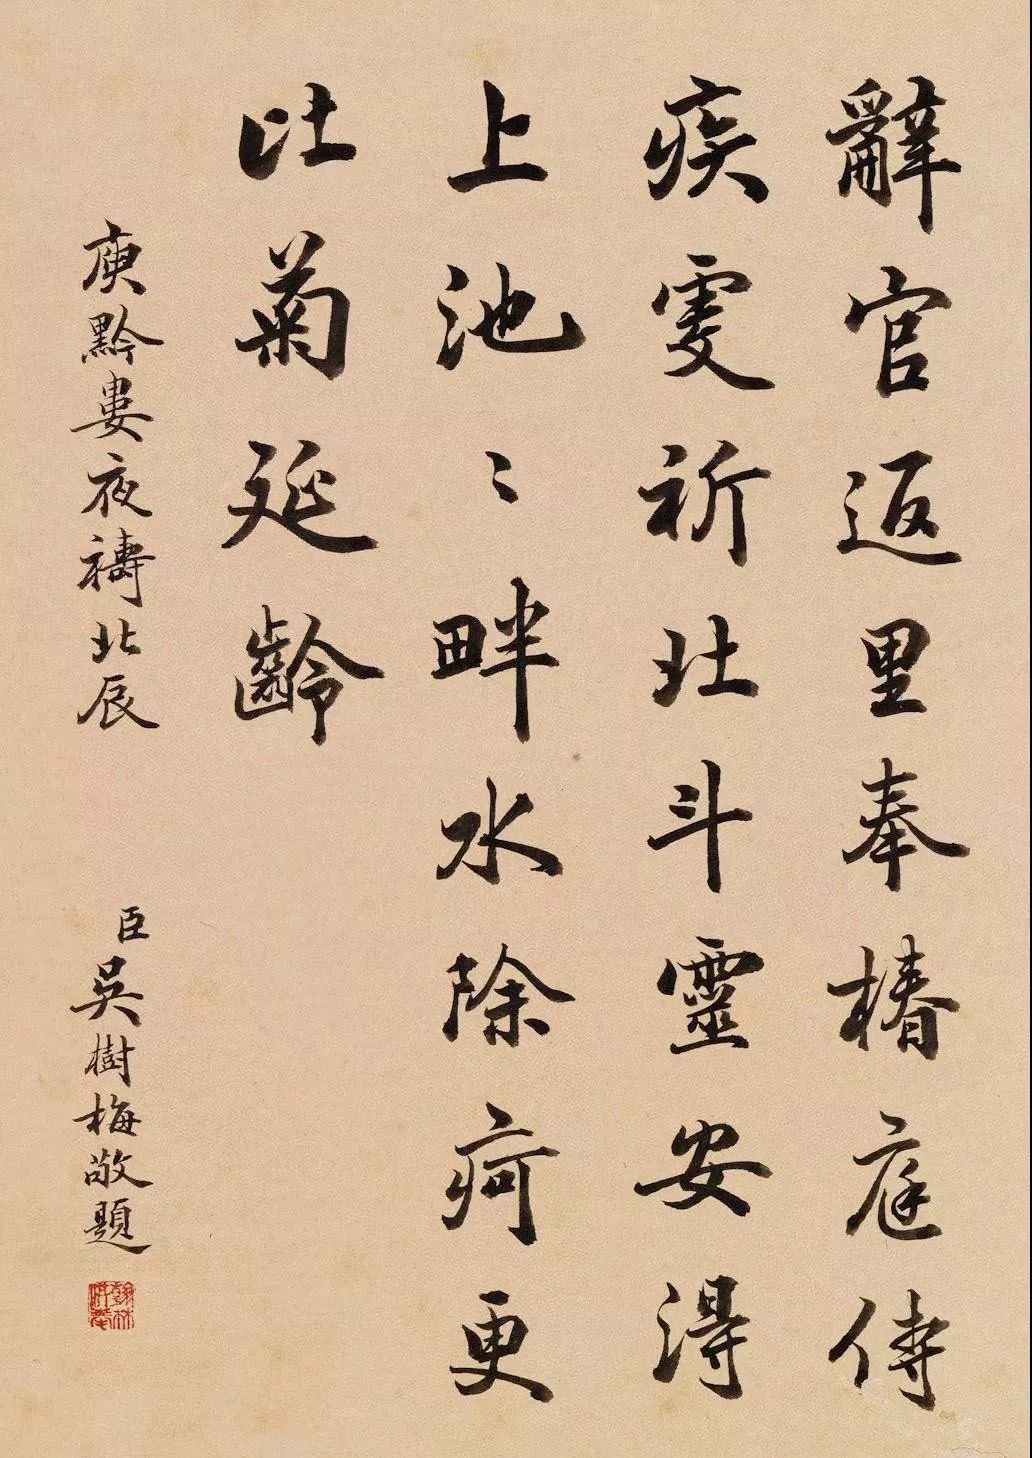 辭官返里奉椿庭侍
疾虔祈北斗靈安得
上池池畔水除痾更
比菊延齡
庾黔婁夜禱北辰
臣吳樹梅敬題